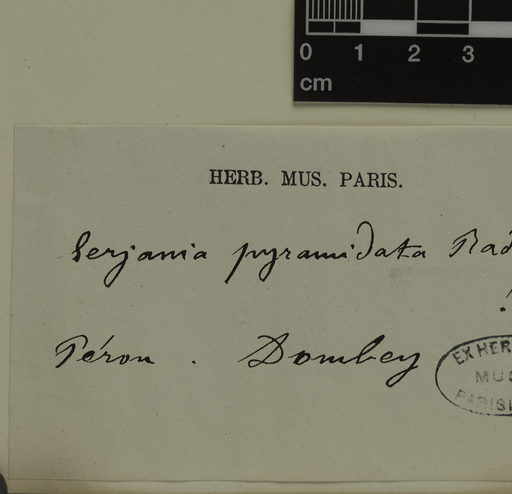 0 1 2 3
cm
HERB. MUS. PARIS.
Serjania pyramidata Rad
!
Pérou . Dombey
EX HER
MUS
PARISI